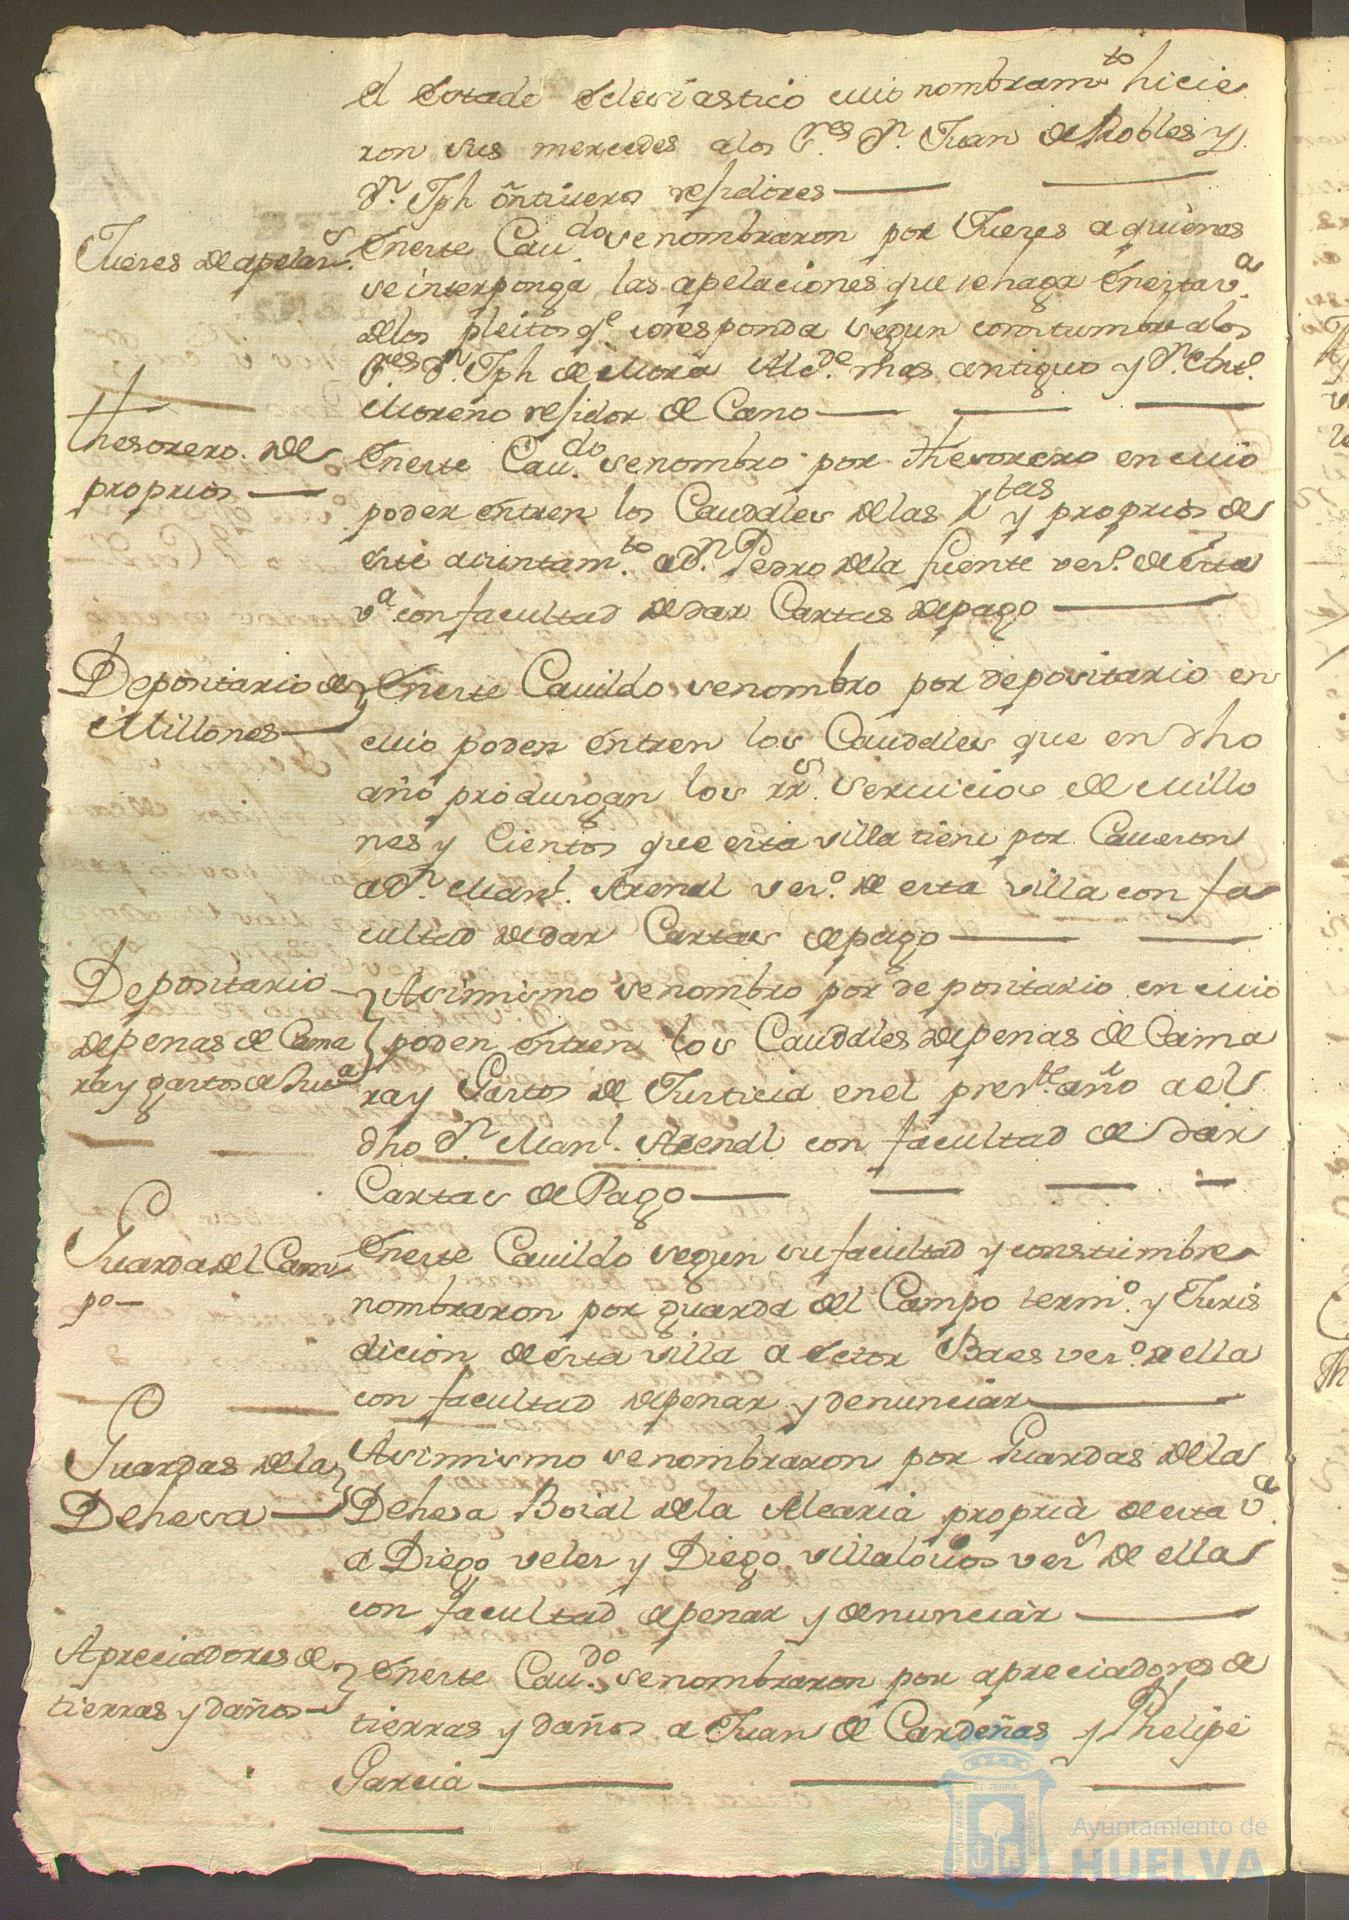 el estado eclesiastico cuio nombram.to hicie
ron sus mercedes a los S.res D.n Juan de Robles y
D.n Jph ontiveros residores
Jueses de apelas.s
En este Cau.do se nombraron por Jueses a quienes
se interponga las apelaciones que se haga en esta v.a
de los pleitos q.e coresponda segun constumbre a los
S.res D.n Jph de Mora Alc.de mas antiguo y D.n Ant.o
Moreno residor de Cano
thesorero de
proprios
En este Cau.do se nombro por thesorero en cuio
poder entren los Caudales de las R.tas y proprios de
este aiuntam.to a D.n Pedro de la fuente vez.o de esta
v.a con facultad de dar Cartas de pago
Depositario de
Millones
En este Cauildo se nombro por depositario en
cuio poder entren los Caudales que en dho
año produsgan los rr.s seruicios de millo
nes y Cientos que esta villa tiene por Caueson
a D.n Man.l Arenal vez.o de esta villa con fa
cultad de dar Cartas de pago
Depositario
de penas de Cama
ra y gastos de Jus.a
Asimismo se nombro por depositario en cuio
poder entren los Caudales de penas de Cama
ra y Gastos de Justicia en el pres.te año a el
dho D.n Man.l Arenal con facultad de dar
Cartas de Pago
Guarda del Cam
po
En este Cauildo segun su facultad y constumbre
nombraron por guarda del Campo term.o y Juris
dicion de esta villa a Setor Baes vez.o de ella
con facultad de penar y denunciar
Guardas de la
Dehesa
Asimismo se nombraron por Guardas de la
Dehesa Boial de la Alcaria propria de esta v.a
a Diego veles y Diego villalouos vez.s de ella
con facultad de penar y denunciar
Apreciadores de
tierras y daños
En este Cau.do se nombraron por apreciadores de
tierras y daños a Juan de Cardeñas y Phelipe
Garcia
Ayuntamiento de
HUELVA